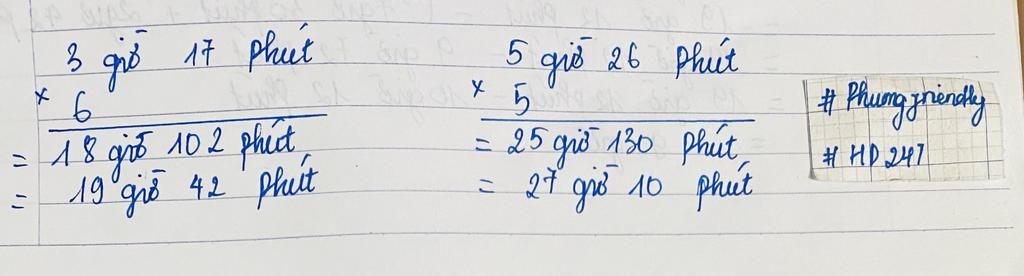 3 giờ 17 phút
× 6
= 18 giờ 102 phút
= 19 giờ 42 phút
5 giờ 26 phút
× 5
= 25 giờ 130 phút
= 27 giờ 10 phút
# Phuongfriendly
# HD247